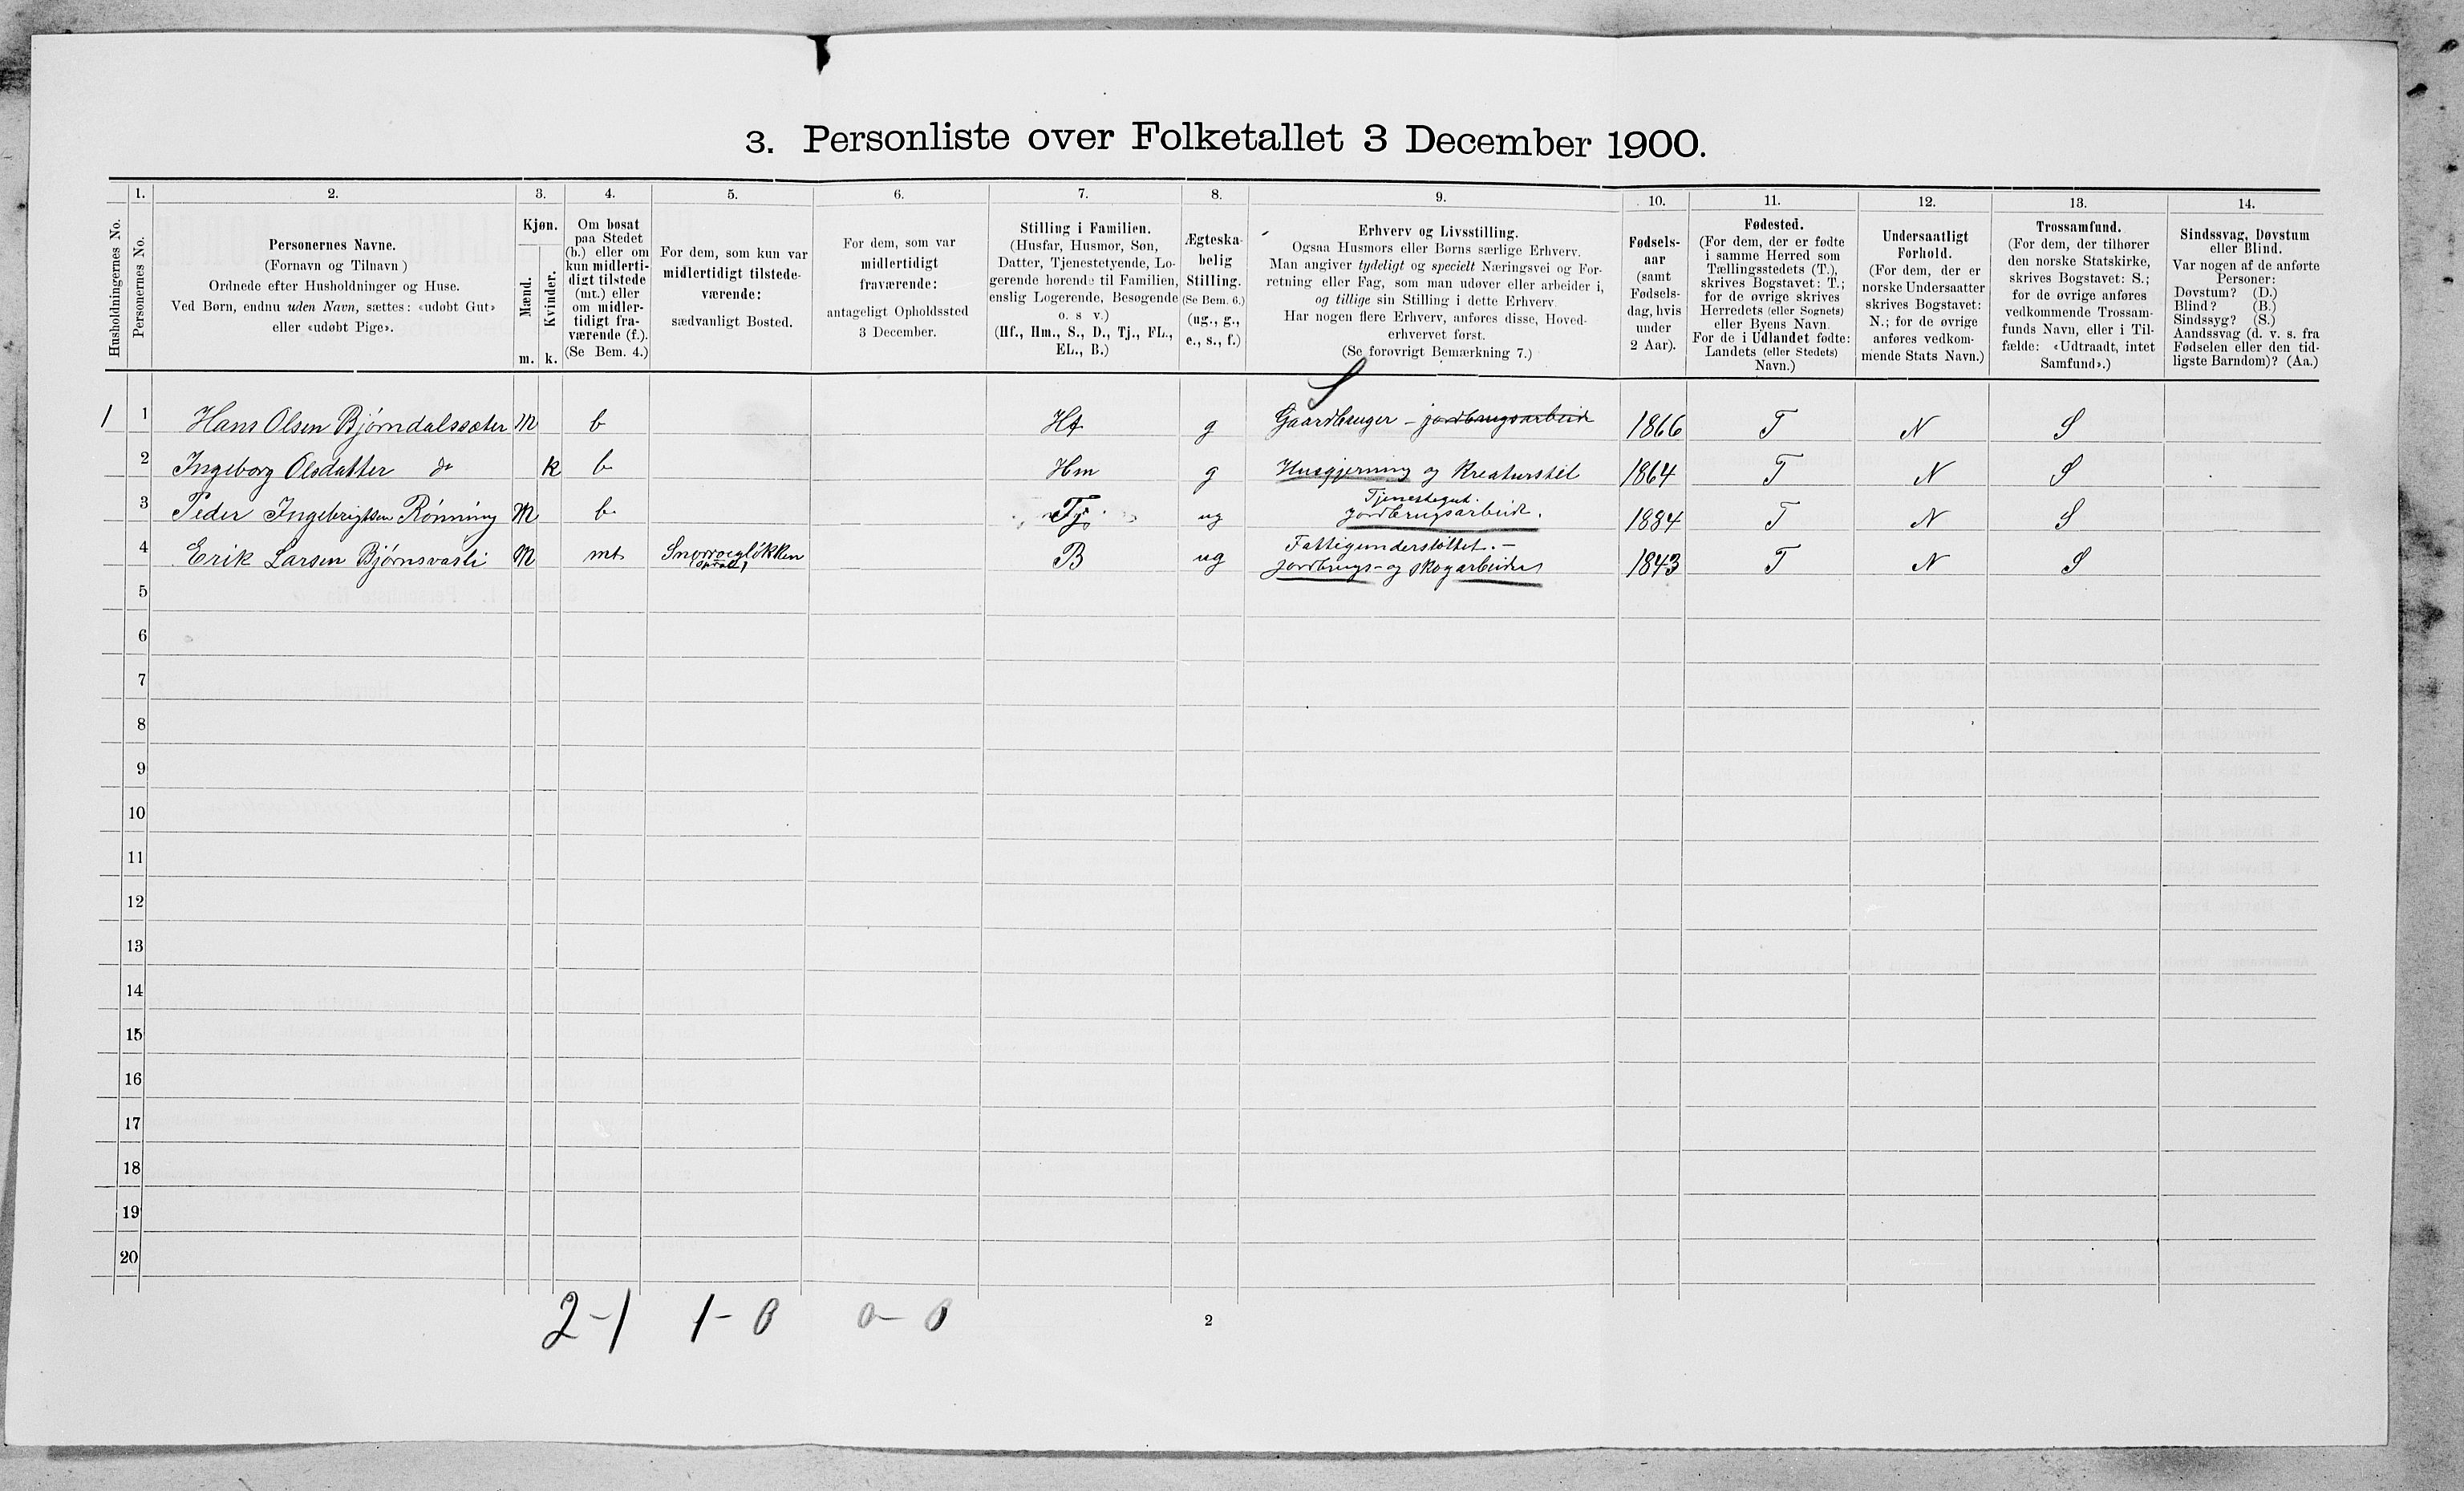 3. Personliste over Folketallet 3 December 1900.
1. 2. 3. 4. 5. 6. 7. 8. 9. 10. 11. 12. 13. 14.
Husholdningernes No.
Personernes No.
Personernes Navne.
(Fornavn og Tilnavn)
Ordnede efter Husholdninger og Huse.
Ved Børn, endnu uden Navn, sættes: «udøbt Gut»
eller «udøbt Pige».
Kjøn.
Mænd.
Kvinder.
m. k.
Om bosat
paa Stedet
(b.) eller om
kun midlerti-
digt tilstede
(mt.) eller
om midler-
tidigt fra-
værende (f.).
(Se Bem. 4.)
For dem, som kun var
midlertidigt tilstede-
værende:
sædvanligt Bosted.
For dem, som var
midlertidigt
fraværende:
antageligt Opholdssted
3 December.
Stilling i Familien.
(Husfar, Husmor, Søn,
Datter, Tjenestetyende, Lo-
gerende hørende til Familien,
enslig Logerende, Besøgende
o. s v.)
(Hf., Hm., S., D., Tj., FL.,
EL., B.)
Ægteska-
belig
Stilling.
(Se Bem. 6.)
(ug., g.,
e., s., f.)
Erhverv og Livsstilling.
Ogsaa Husmors eller Børns særlige Erhverv.
Man angiver tydeligt og specielt Næringsvei og For-
retning eller Fag, som man udøver eller arbeider i,
og tillige sin Stilling i dette Erhverv.
Har nogen flere Erhverv, anføres disse, Hoved-
erhvervet først.
(Se forøvrigt Bemærkning 7.)
Fødsels-
aar
(samt
Fødsels-
dag, hvis
under
2 Aar).
Fødested.
(For dem, der er fødte
i samme Herred som
Tællingsstedets (T.),
skrives Bogstavet: T.;
for de øvrige skrives
Herredets (eller Sognets)
eller Byens Navn.
For de i Udlandet fødte:
Landets (eller Stedets)
Navn.)
Undersaatligt
Forhold.
(For dem, der er
norske Undersaatter
skrives Bogstavet:
N.; for de øvrige
anføres vedkom-
mende Stats Navn.)
Trossamfund.
(For dem, der tilhører
den norske Statskirke,
skrives Bogstavet: S.;
for de øvrige anføres
vedkommende Trossam-
funds Navn, eller i Til-
fælde: «Udtraadt, intet
Samfund».)
Sindssvag, Døvstum
eller Blind.
Var nogen af de anførte
Personer:
Døvstum? (D.)
Blind? (B.)
Sindssyg? (S.)
Aandssvag (d. v. s. fra
Fødselen eller den tid-
ligste Barndom)? (Aa.)
S
1 1 Hans Olsen Bjørndalssæter M b Hf g Gaardbruger - jordbrugsarbeide 1866 T N S
2 Ingeborg Olsdatter do k b Hm g Husgjerning og Kreaturstel 1864 T N S
Tjenestegut.
3 Peder Ingebrigtsen Rønning M b Tj ug jordbrugsarbeide. 1884 T N S
Fattigunderstøttet. -
4 Erik Larsen Bjørnsvasli M mt Snorroegløkken B ug jordbrugs- og skogarbeider 1843 T N S
5
6
7
8
9
10
11
12
13
14
15
16
17
18
19
20
2-1 1-0 0-0
2